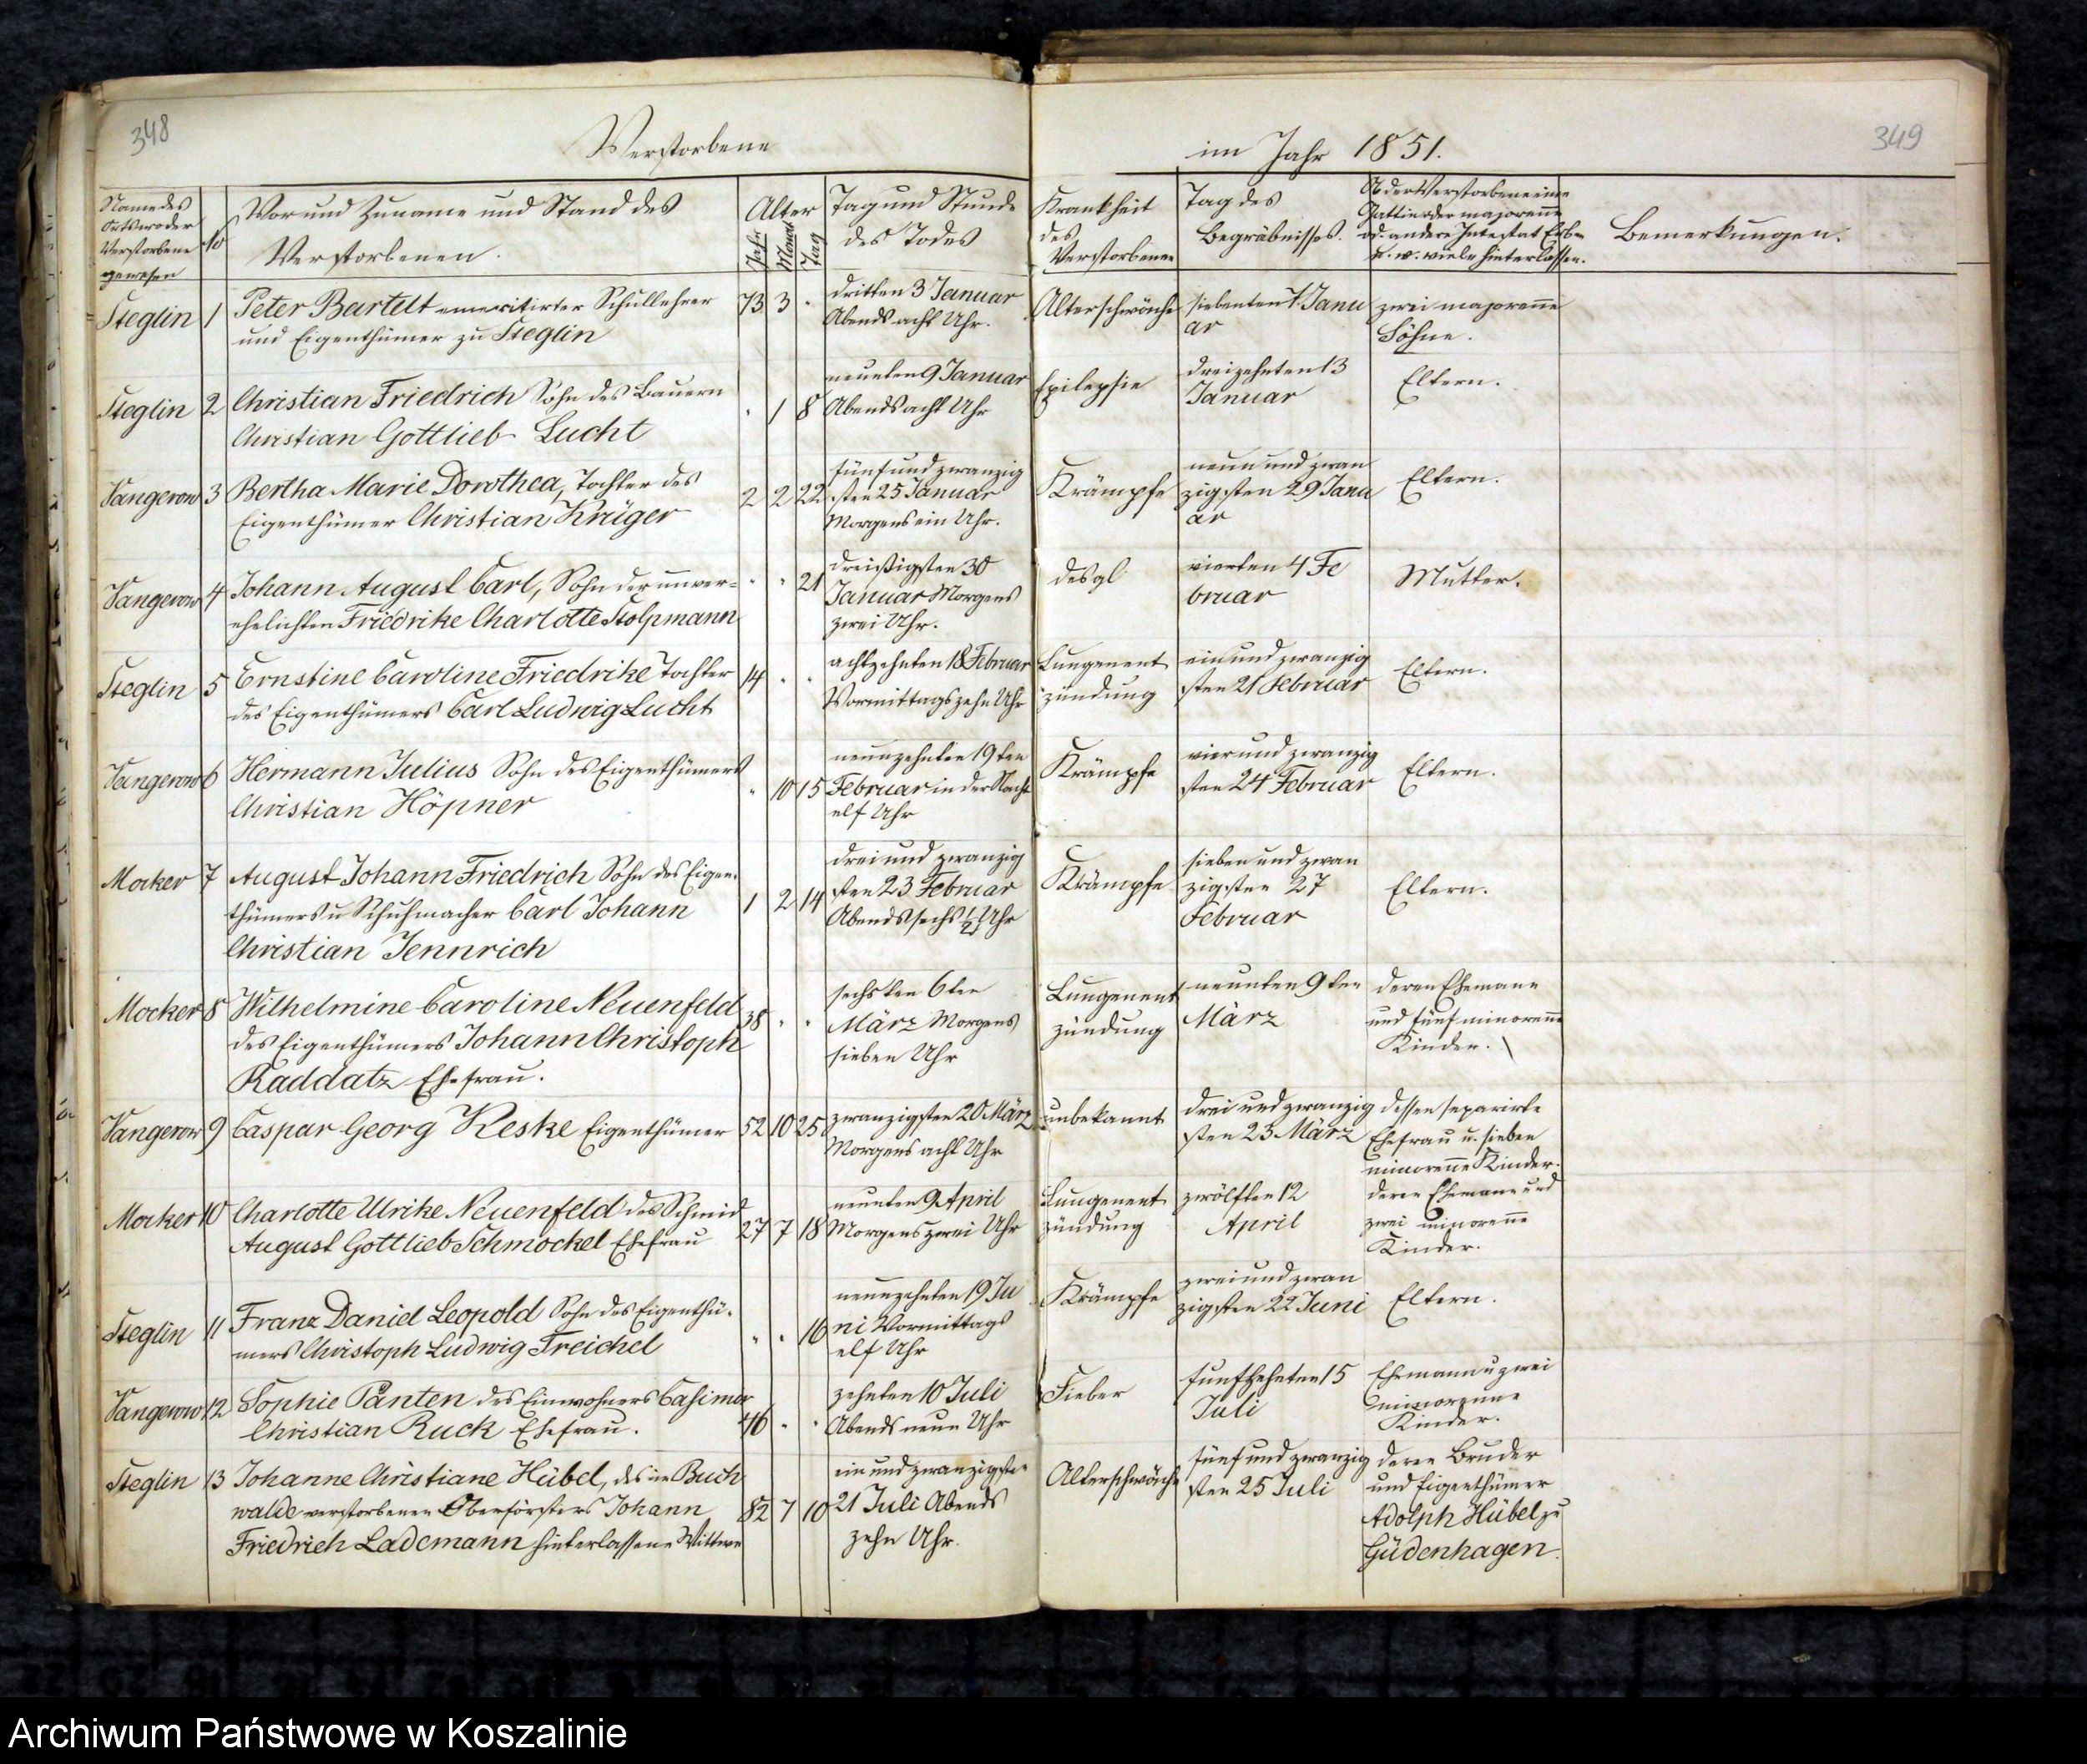 348
Verstorbene
Name des
Orts wo der
Verstorbene
gewesen
No
Vor und Zuname und Stand des
Verstorbenen.
Alter
Jahr
Monat
Tag
Tag und Stunde
des Todes
Steglin
1
Peter Bartelt emeritirter Schullehrer
und Eigenthümer zu Steglin
73 3 "
dritten 3 Januar
Abends acht Uhr.
Steglin
2
Christian Friedrich Sohn des Bauern
Christian Gottlieb Lucht
" 1 8
neunten 9 Januar
Abends acht Uhr
Vangerow
3
Bertha Marie Dorothea, Tochter des
Eigenthümer Christian Krüger
2 2 22
fünf und zwanzig
sten 25 Januar
Morgens ein Uhr.
Vangerow
4
Johann August Carl, Sohn der unver=
ehelichten Friedrike Charlotte Stolpmann
" " 21
dreißigsten 30
Januar Morgens
zwei Uhr.
Steglin
5
Ernstine Caroline Friedrike Tochter
des Eigenthümers Carl Ludwig Lucht
14 " "
achtzehnten 18 Februar
Vormittags zehn Uhr
Vangerow
6
Hermann Julius Sohn des Eigenthümers
Christian Höpner
" 10 15
neunzehnten 19ten
Februar in der Nacht
elf Uhr
Mocker
7
August Johann Friedrich Sohn des Eigen=
thümers u Schuhmacher Carl Johann
Christian Jennrich
1 2 14
drei und zwanzig
sten 23 Februar
Abends sechs 1/2 Uhr
Mocker
8
Wilhelmine Caroline Neuenfeld
des Eigenthümers Johann Christoph
Raddatz Ehefrau.
38 " "
sechsten 6ten
März Morgens
sieben Uhr
Vangerow
9
Caspar Georg Keske Eigenthümer
52 10 25
zwanzigsten 20 März
Morgens acht Uhr
Mocker
10
Charlotte Ulrike Neuenfeld des Schmid
August Gottlieb Schmockel Ehefrau
27 7 18
neunten 9 April
Morgens zwei Uhr
Steglin
11
Franz Daniel Leopold Sohn des Eigenthü=
mers Christoph Ludwig Treichel
" " 16
neunzehnten 19 Ju
ni Vormittags
elf Uhr
Vangerow
12
Sophie Panten des Einwohners Casimer
Christian Ruck Ehefrau.
46 " "
zehnten 10 Juli
Abends neun Uhr
Steglin
13
Johanne Christiane Hübel, des in Buch
walde verstorbenen Oberförsters Johann
Friedrich Lademann hinterlassene Wittwe
82 7 10
ein und zwanzigsten
21 Juli Abends
zehn Uhr.
349
im Jahr 1851.
Krankheit
des
Verstorbenen
Tag des
Begräbnisses.
Ob der Verstorbene einen
Gatten oder majorenne
od. andere Intestat Erben
u. w. viele hinterlassen.
Bemerkungen.
Alterschwäche
siebenten 7. Janu
ar
zwei majorenne
Söhne.
Epilepsie
dreizehnten 13
Januar
Eltern.
Krämpfe
neun und zwan
zigsten 29 Janu
ar
Eltern.
desgl
vierten 4 Fe
bruar
Mutter.
Lungenent
zündung
ein und zwanzig
sten 21 Februar
Eltern.
Krämpfe
vier und zwanzig
sten 24 Februar
Eltern.
Krämpfe
sieben und zwan
zigsten 27
Februar
Eltern.
Lungenent
zündung
neunten 9ten
März
deren Ehemann
und fünf minorenne
Kinder.
unbekannt
drei und zwanzig
sten 23 März
dessen separirte
Ehefrau u. sieben
minorenne Kinder.
Lungenent
zündung
zwölften 12
April
deren Ehemann und
zwei minorenne
Kinder.
Krämpfe
zwei und zwan
zigsten 22 Juni
Eltern.
Fieber
funfzehnten 15
Juli
Ehemann u zwei
minorenne
Kinder.
Alterschwäche
fünf und zwanzig
sten 25 Juli
deren Bruder
und Eigenthümer
Adolph Hübel zu
Güdenhagen.
Archiwum Państwowe w Koszalinie